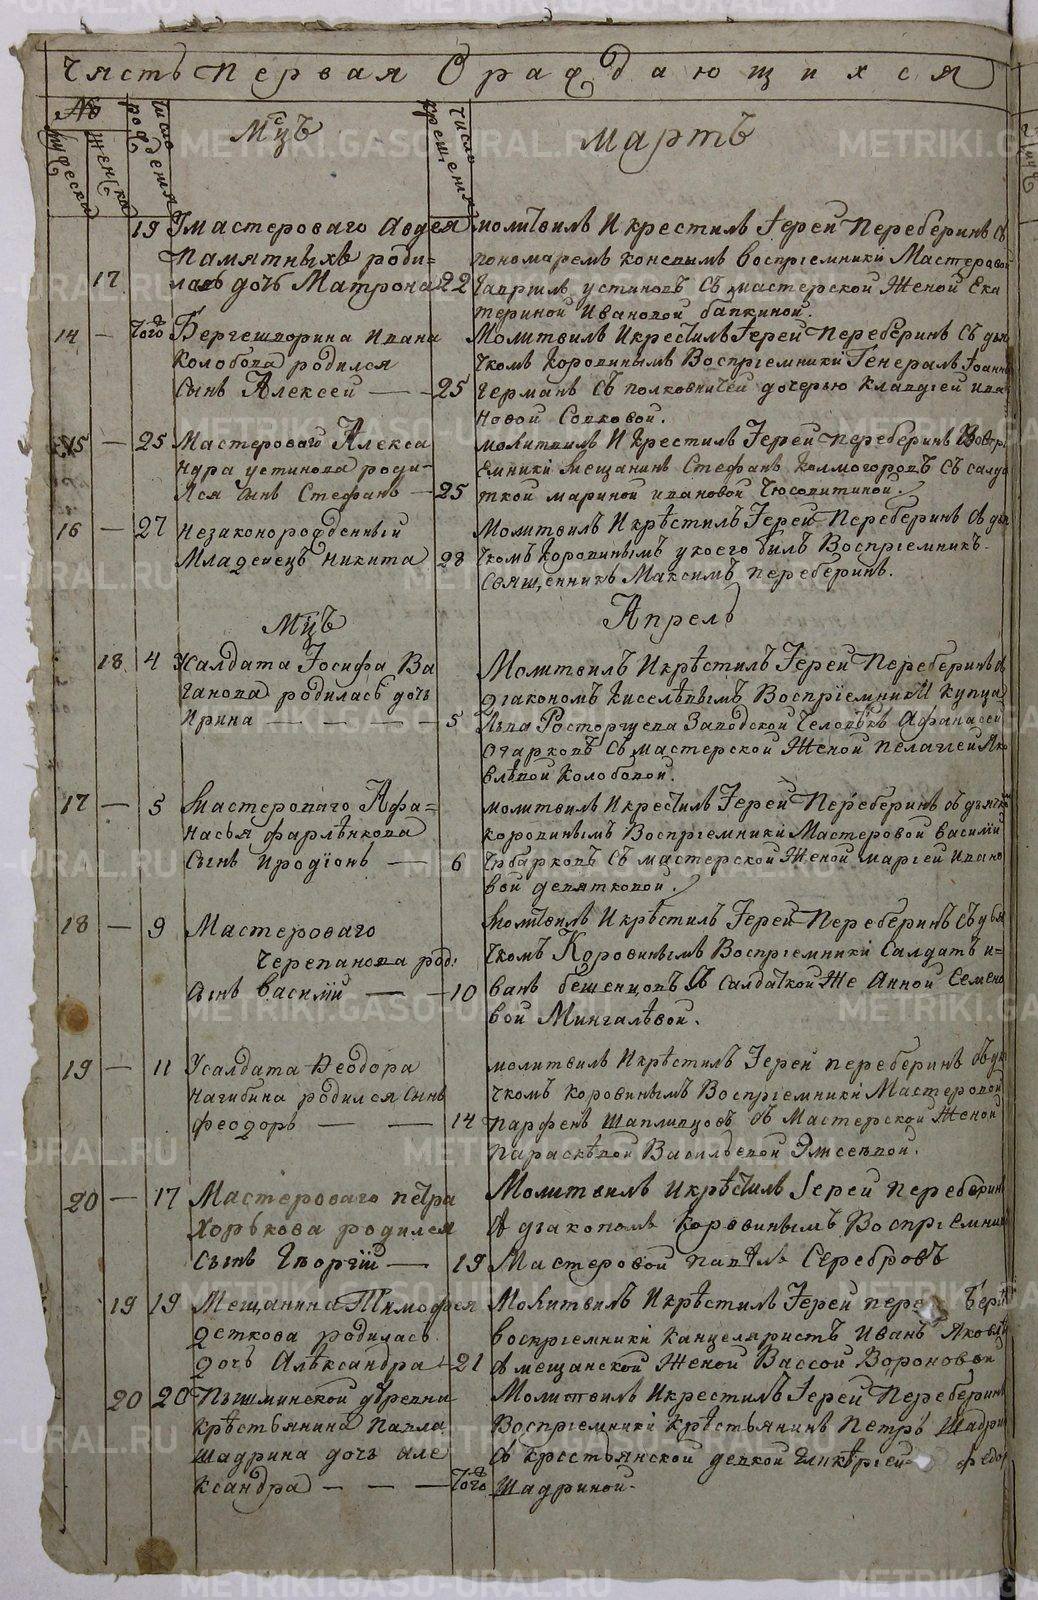 Часть первая О раждающихся
№ мужеска женска
число рождения
Мцъ
число крещения
мартъ
19 Умастероваго Авдея
Памятныхъ роди=
17 лась дочь Матрона 22
молитвилъ И крестилъ Іерей Переберинъ съ
пономаремъ коневымъ воспріемники Мастеровой
Гаврилъ устиновъ съ мастерской женой Ека
териной Ивановой бабкиной.
14 — того Берггешворина Ивана
Колобова родился
сынъ Алексей — 25
Молитвилъ И крестилъ Іерей Переберинъ съ дья
чкомъ Коровинымъ Воспріемники Генералъ Іоаннъ
Германъ съ полковничей дочерью Клавдіей ива
новой Соковой.
15 — 25 Мастероваго Алекса
ндра устинова роди-
лся сынъ Стефанъ — 25
молитвилъ И Крестилъ Іерей переберинъ Воспрі
емники Мещанинъ Стефанъ Колмогоровъ съ салда
ткой мариной ивановой Чюсовитиной.
16 — 27 незаконорожденный
Младенецъ Никита 28
Молитвилъ И крѣстилъ Іерей Переберинъ съ дья
чкомъ Коровинымъ у коего былъ Воспріемникъ
Священникъ Максимъ переберинъ.
Мцъ
Апрель
18 4 Усалдата Іосифа Ва
ганова родилась дочь
Ирина — — — — 5
Молитвилъ И крѣстилъ Іерей Переберинъ съ
діакономъ Киселѣвымъ Воспріемники купца
Льва Расторгуева Заводской Человѣкъ Афанасей
Огарковъ съ мастерской Женой пелагіей Яко
влѣвой Колобовой.
17 — 5 Мастероваго Афа=
насья фарлѣнкова
Сынъ Иродіонъ — 6
молитвилъ И крестилъ Іерей Переберинъ съ дьячко
коровинымъ Воспріемники Мастеровой василий
съ мастерской Женой маріей Ивано
вой девятковой.
18 — 9 Мастероваго
Черепанова род:
сынъ василий — 10
Молитвилъ И крѣстилъ Іерей Переберинъ съ дья
чкомъ Коровинымъ Воспріемники Салдатъ и=
ванъ бешенцовъ съ салдаткой Же Анной Семено
вой Мингалѣвой.
19 — 11 Усалдата Феодора
Нагибина родился Сынъ
феодоръ — — 14
молитвилъ И крѣстилъ Іерей переберинъ съ дья
чкомъ коровинымъ Воспріемники Мастеровой
парфенъ Шаплывцовъ съ Мастерской Женой
параскѣвой Васильевой Элисеевой.
20 — 17 Мастероваго петра
Хорькова родился
Сынъ Георгій — 19
Молитвилъ И крѣстилъ Іерей переберинъ
съ дьякономъ Коровинымъ Воспріемники
Мастеровой павелъ Серебровъ
19 19 Мещанина Тимофея
деткова родилась
дочь Алѣксандра 21
Молитвилъ И крѣстилъ Іерей пере бери
воспріемники канцеляристъ Иванъ Яковлѣ
съ мещанской Женой Вассой Вороновой
20 20 Пышминской деревни
крѣстьянина Павла
Шадрина дочь але
ксандра — — — того
Молитвилъ И крестилъ Іерей Переберинъ
Воспріемники Крѣстьянинъ Петръ Шадрин
съ крестьянской девкой гликѣріей федор
Шадриной.